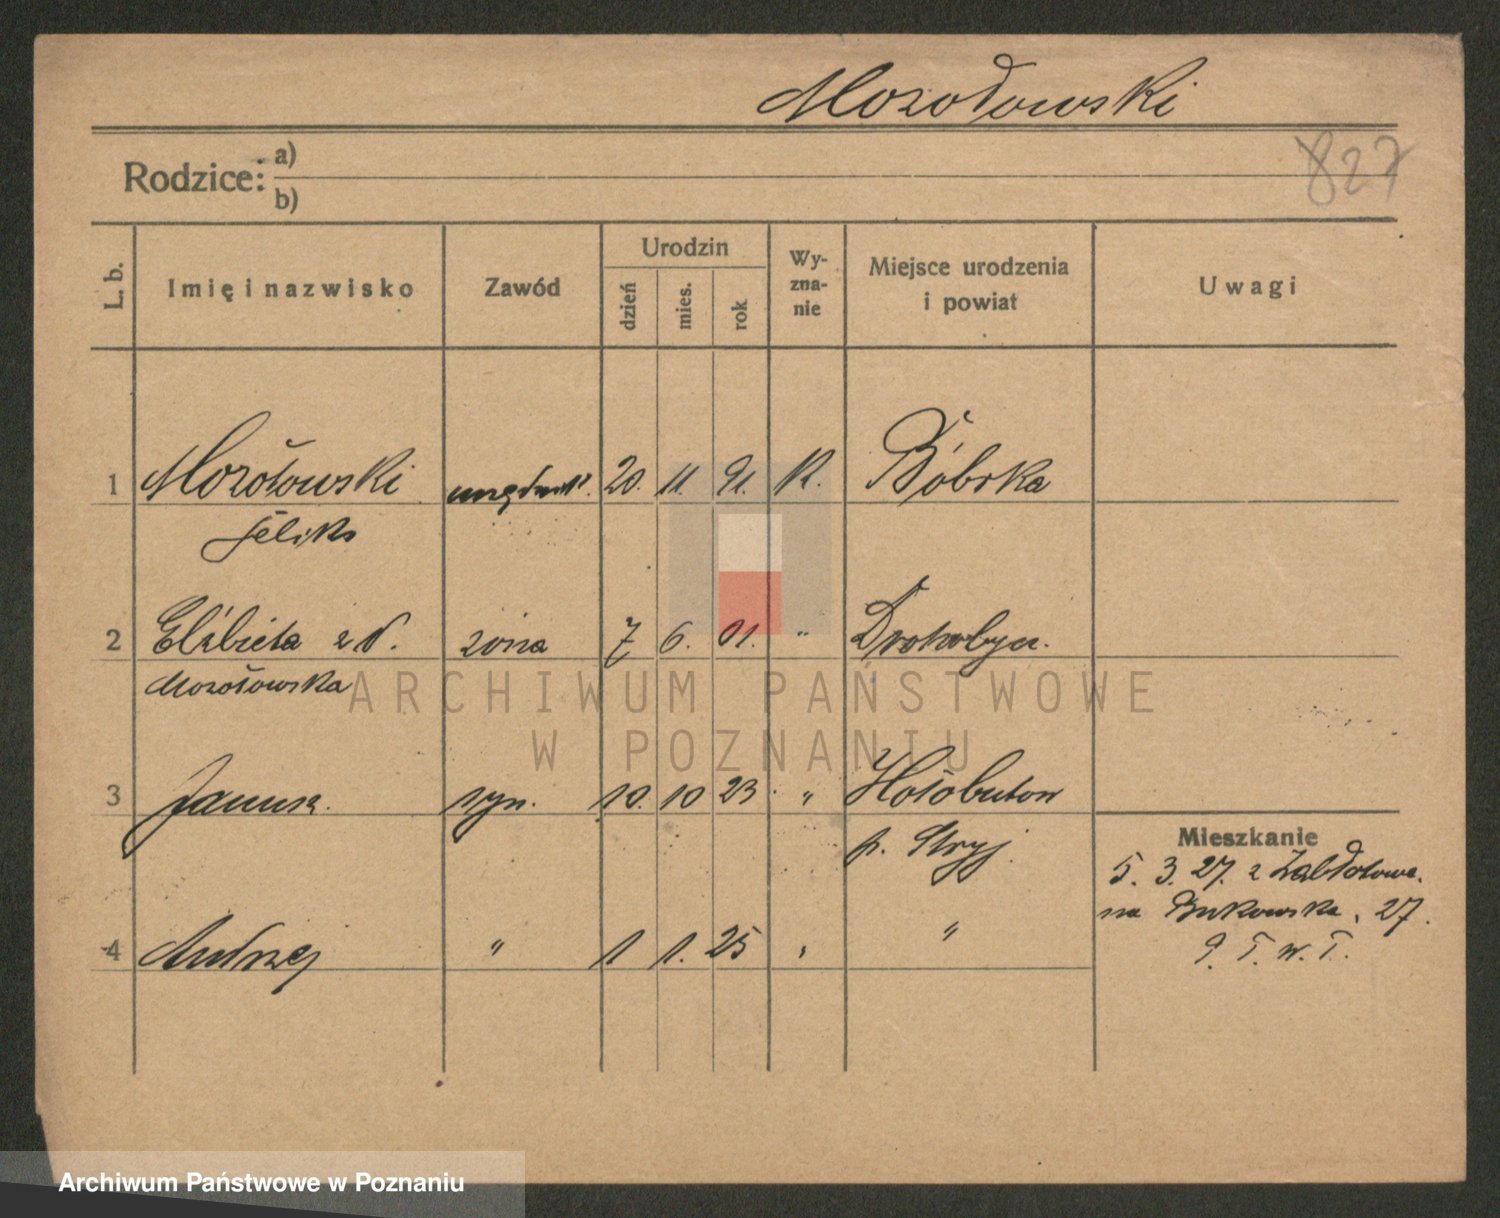 Mozołowski
827
Rodzice: a)
b)
L. b. Imię i nazwisko Zawód Urodzin dzień mies. rok Wyznanie Miejsce urodzenia i powiat Uwagi
1 Mozołowski urzędnik. 20. 11. 91. R. Bóbrka
Feliks
2 Elżbieta z d. żona 7 6. 01. " Drohobycz.
Mozołowska
ARCHIWUM PAŃSTWOWE
W POZNANIU
3 Janusz. syn. 10. 10 23 " Hołobutow
p. Stryj.
Mieszkanie
5. 3. 27. z Zabłotowa.
na Bukowska, 27.
4 Andrzej " 1 1. 25 " "
Archiwum Państwowe w Poznaniu